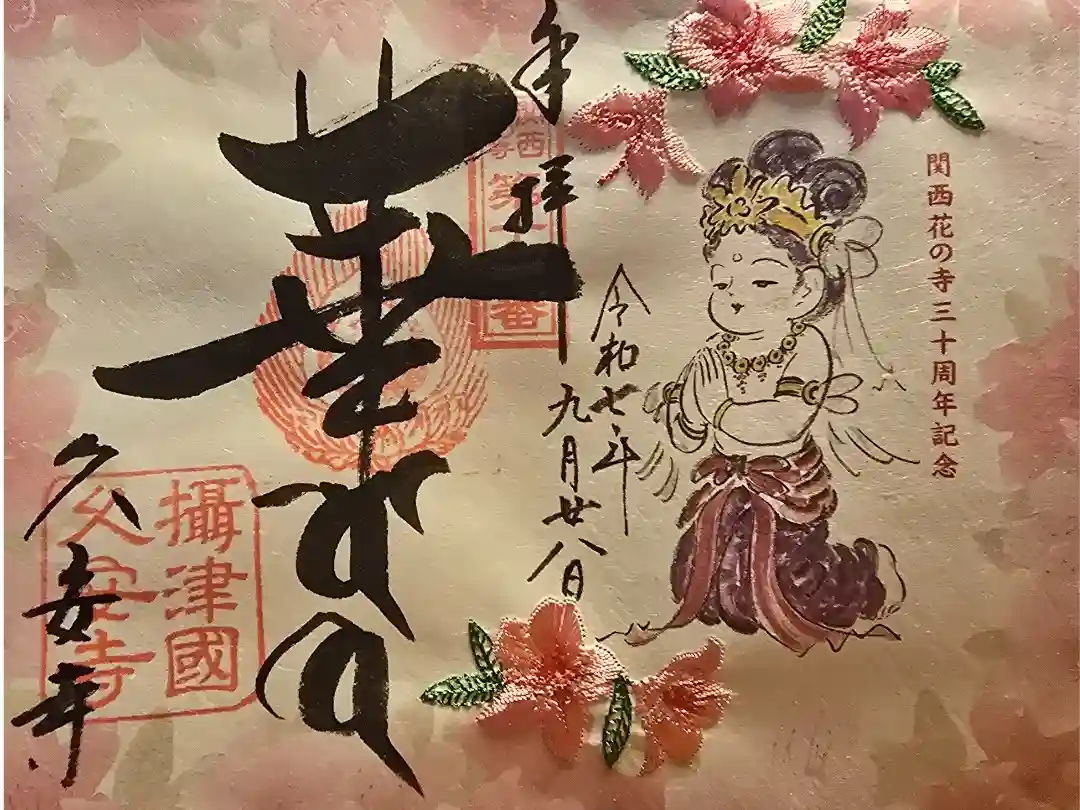 関西花の寺三十周年記念
奉拝
令和七年
九月廿八日
西
第
番
華
攝津國
久安寺
久安寺